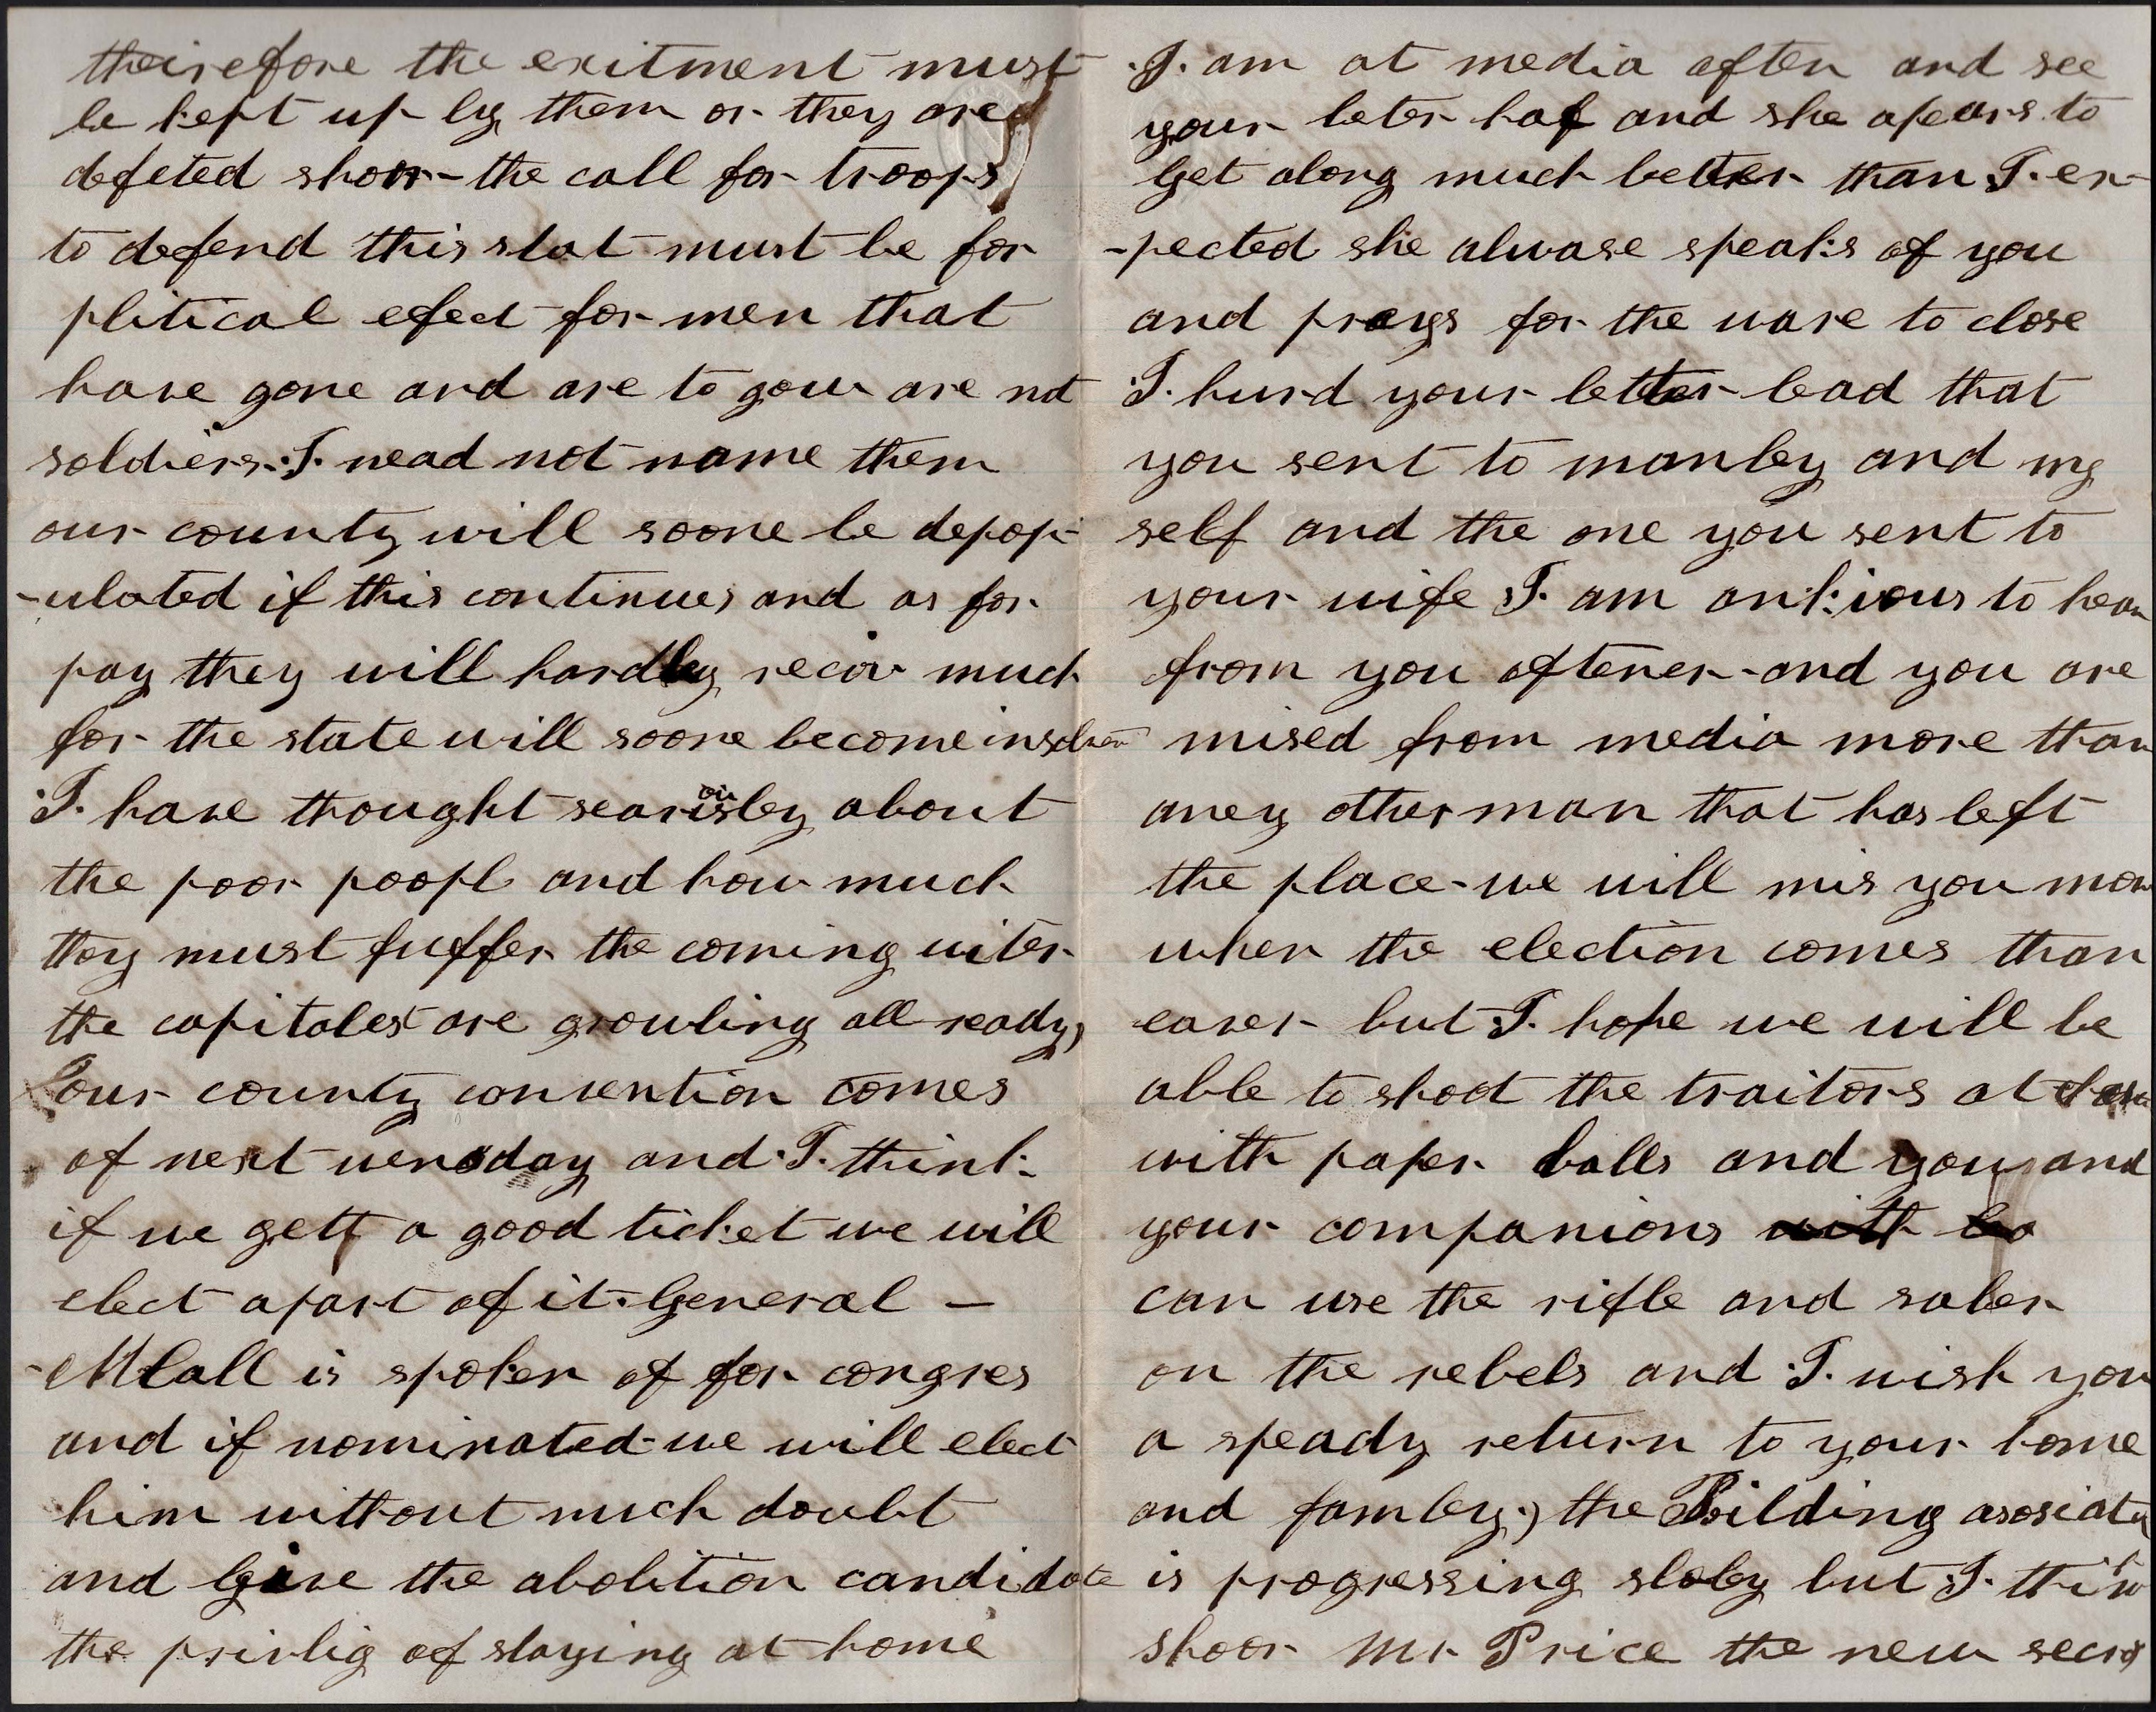 theirefore the exitment must
be kept up by them or they are
defeted shoor - the call for troops
to defend this stat must be for
plitical efect for men that
have gone and are to gow are not
soldiers. I. nead not name them
our county will soone be depop-
-ulated if this continues and as for
pay they will hardley recov much
for the state will soone become
I. have thought searisley about
the poor poopl and how much
they must fuffer the coming witer
the capitalest are growling all ready,
our county convention comes
of next wensday and I. think
if we gett a good ticket we will
elect apart of it. General —
-MCall is spoken of for congres
and if nominated we will elect
him without much doubt
and Give the abolition candidate
the privlig of staying at home
I. am at media often and see
your beter haf and she apears to
Get along much better than I. ex-
-pected she alwase speaks of you
and prays for the ware to close
I. hurd your letter read that
you sent to manley and my
self and the one you sent to
your wife I. am ankious to hear
from you oftener - and you are
mised from media more than
aney other man that has left
the place - we will mis you mor
when the election comes than
eaver but I. hope we will be
able to shoot the traitors at
with paper balls and you and
your companions
can use the rifle and saber
on the rebels and I. wish you
a speady return to your home
and famley., the Bilding asosiat
is progressing sloley but I. think
shoor Mr. Price the new